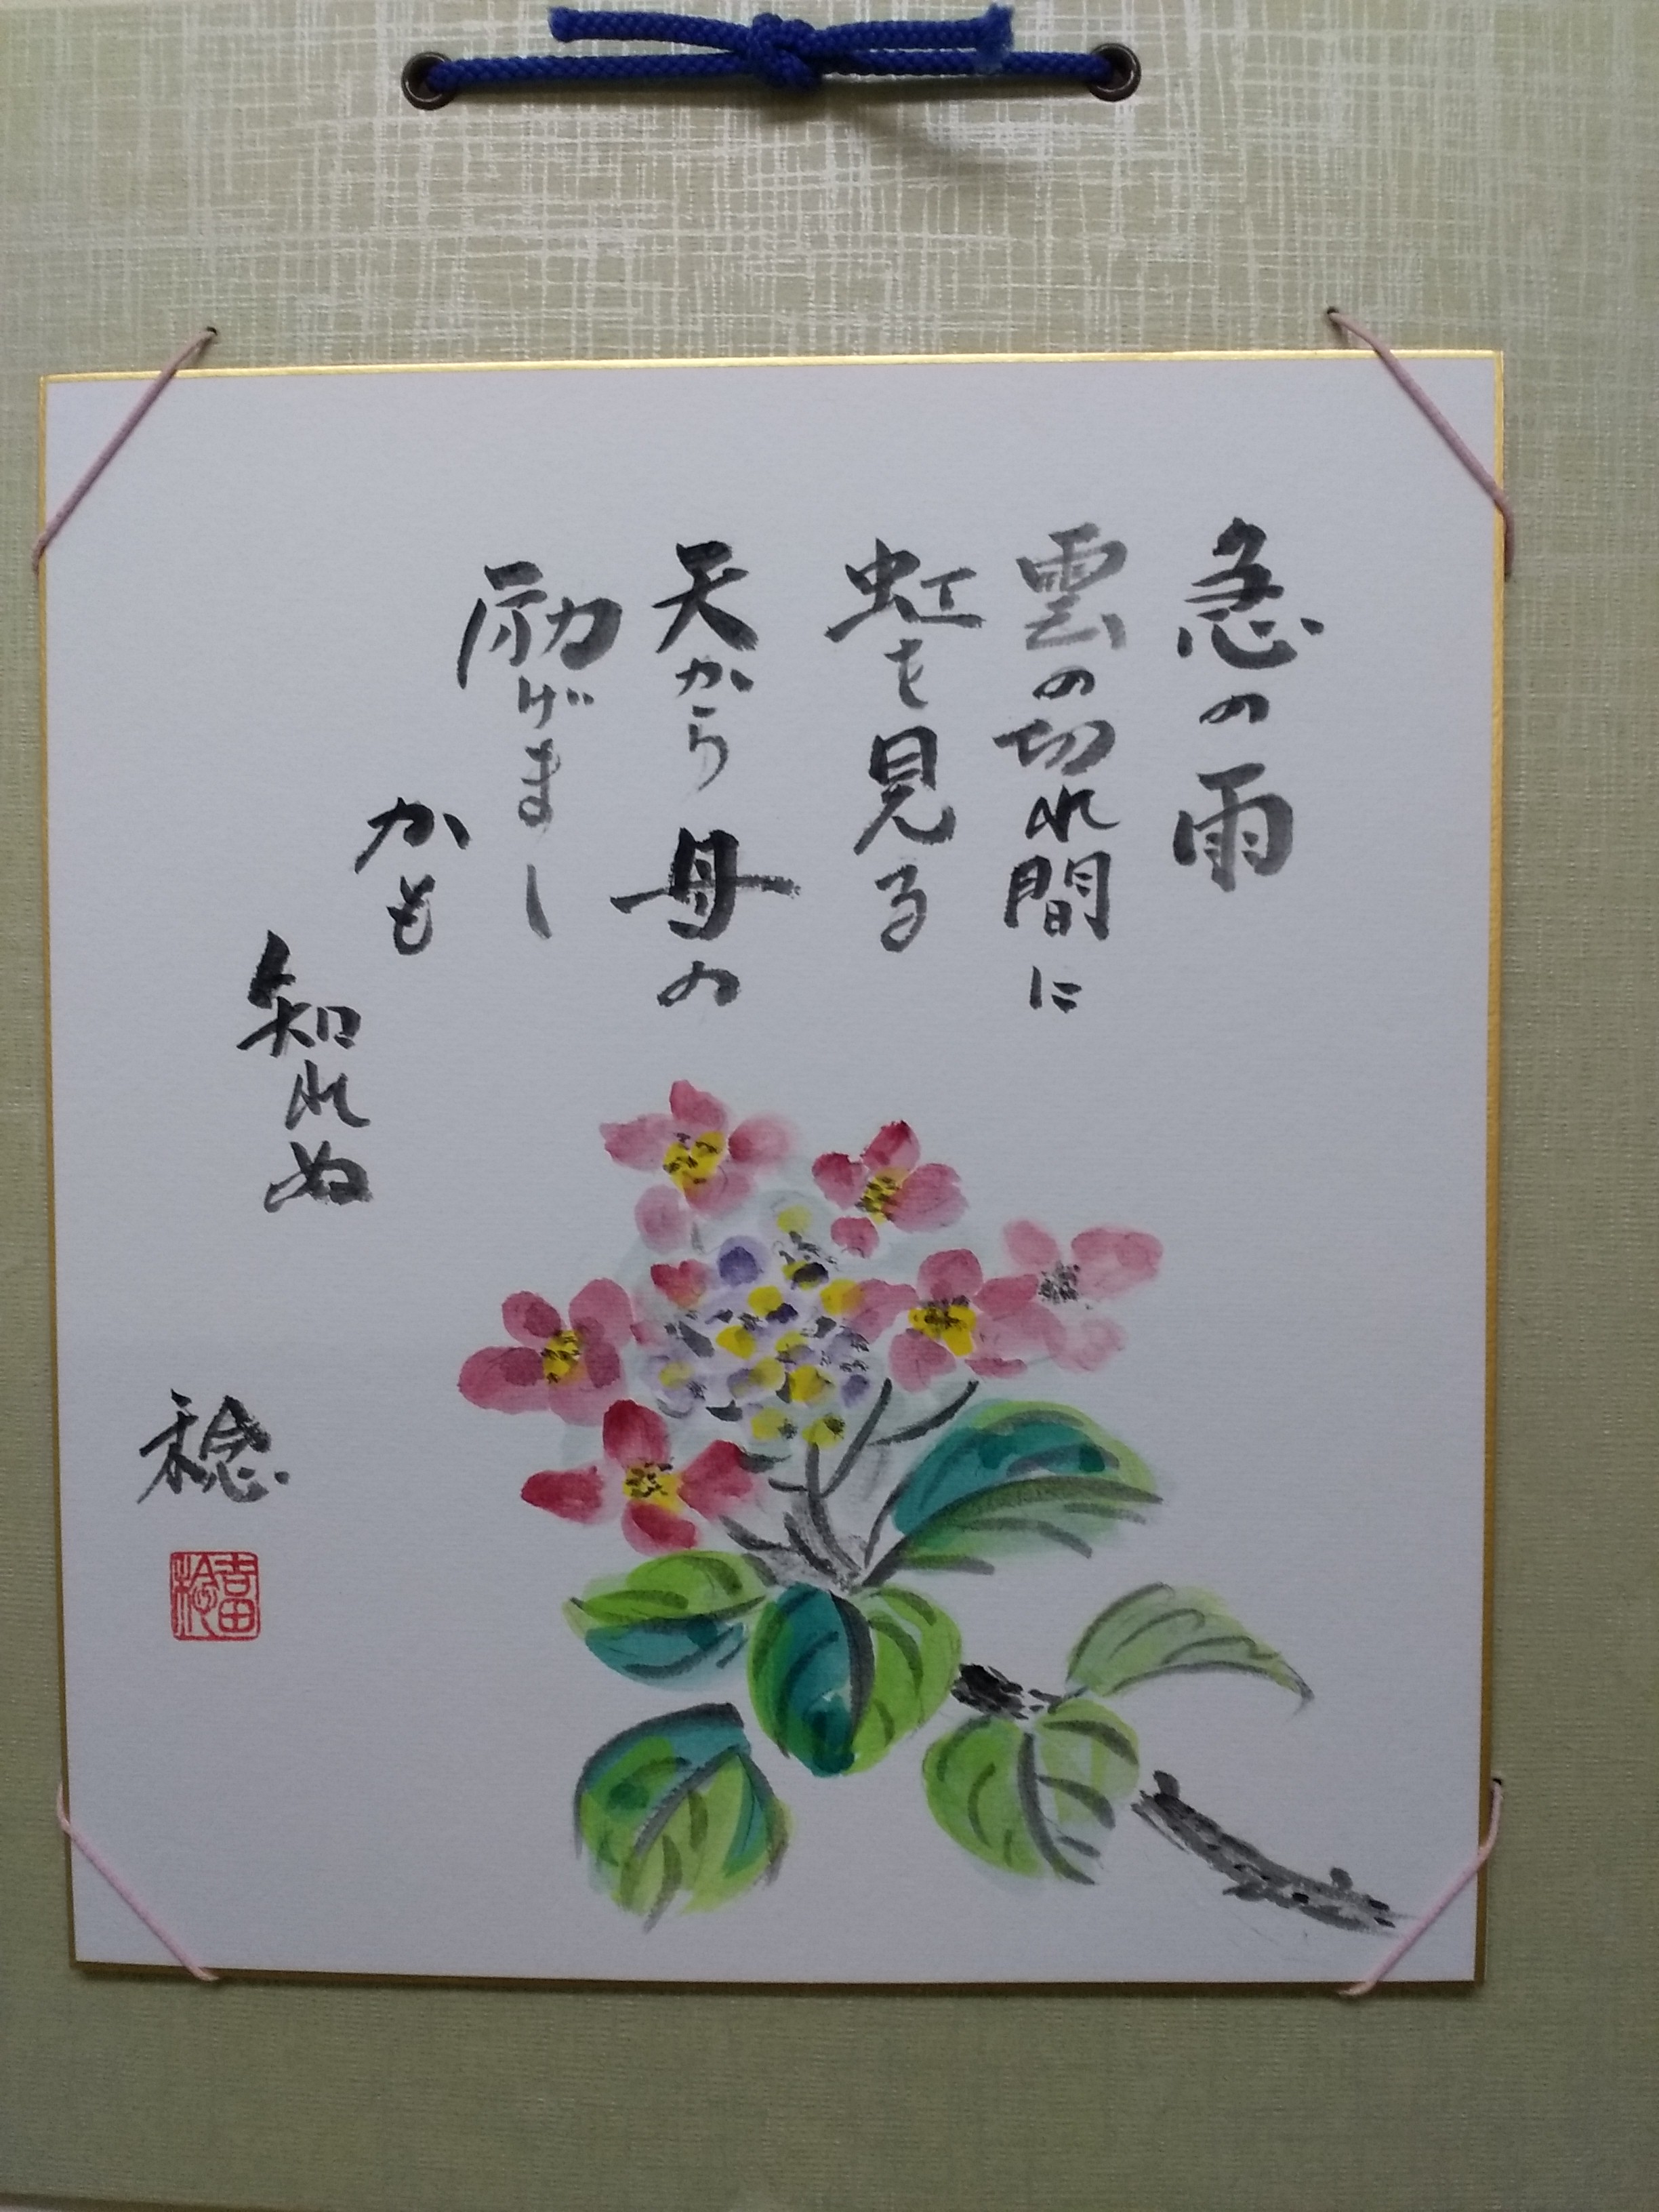 急の雨
雲の切れ間に
虹を見る
天から母の
励げまし
かも
知れぬ
稔
吉田稔